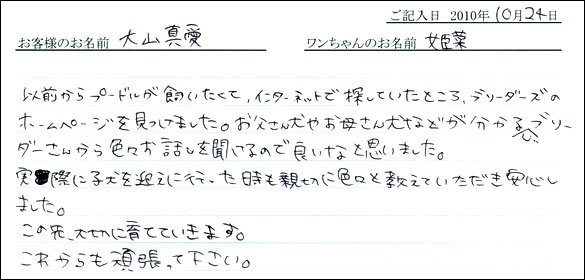 ご記入日 2010年10月24日
お客様のお名前 大山真愛 ワンちゃんのお名前 姫菜
以前からプードルが飼いたくて、インターネットで探していたところ、ブリーダーズの
ホームページを見つけました。お父さん犬やお母さん犬などが分かるし、ブリー
ダーさんから色々お話しを聞けるので良いなと思いました。
実際に子犬を迎えに行った時も親切に色々と教えていただき安心し
ました。
この先、大切に育てていきます。
これからも頑張って下さい。